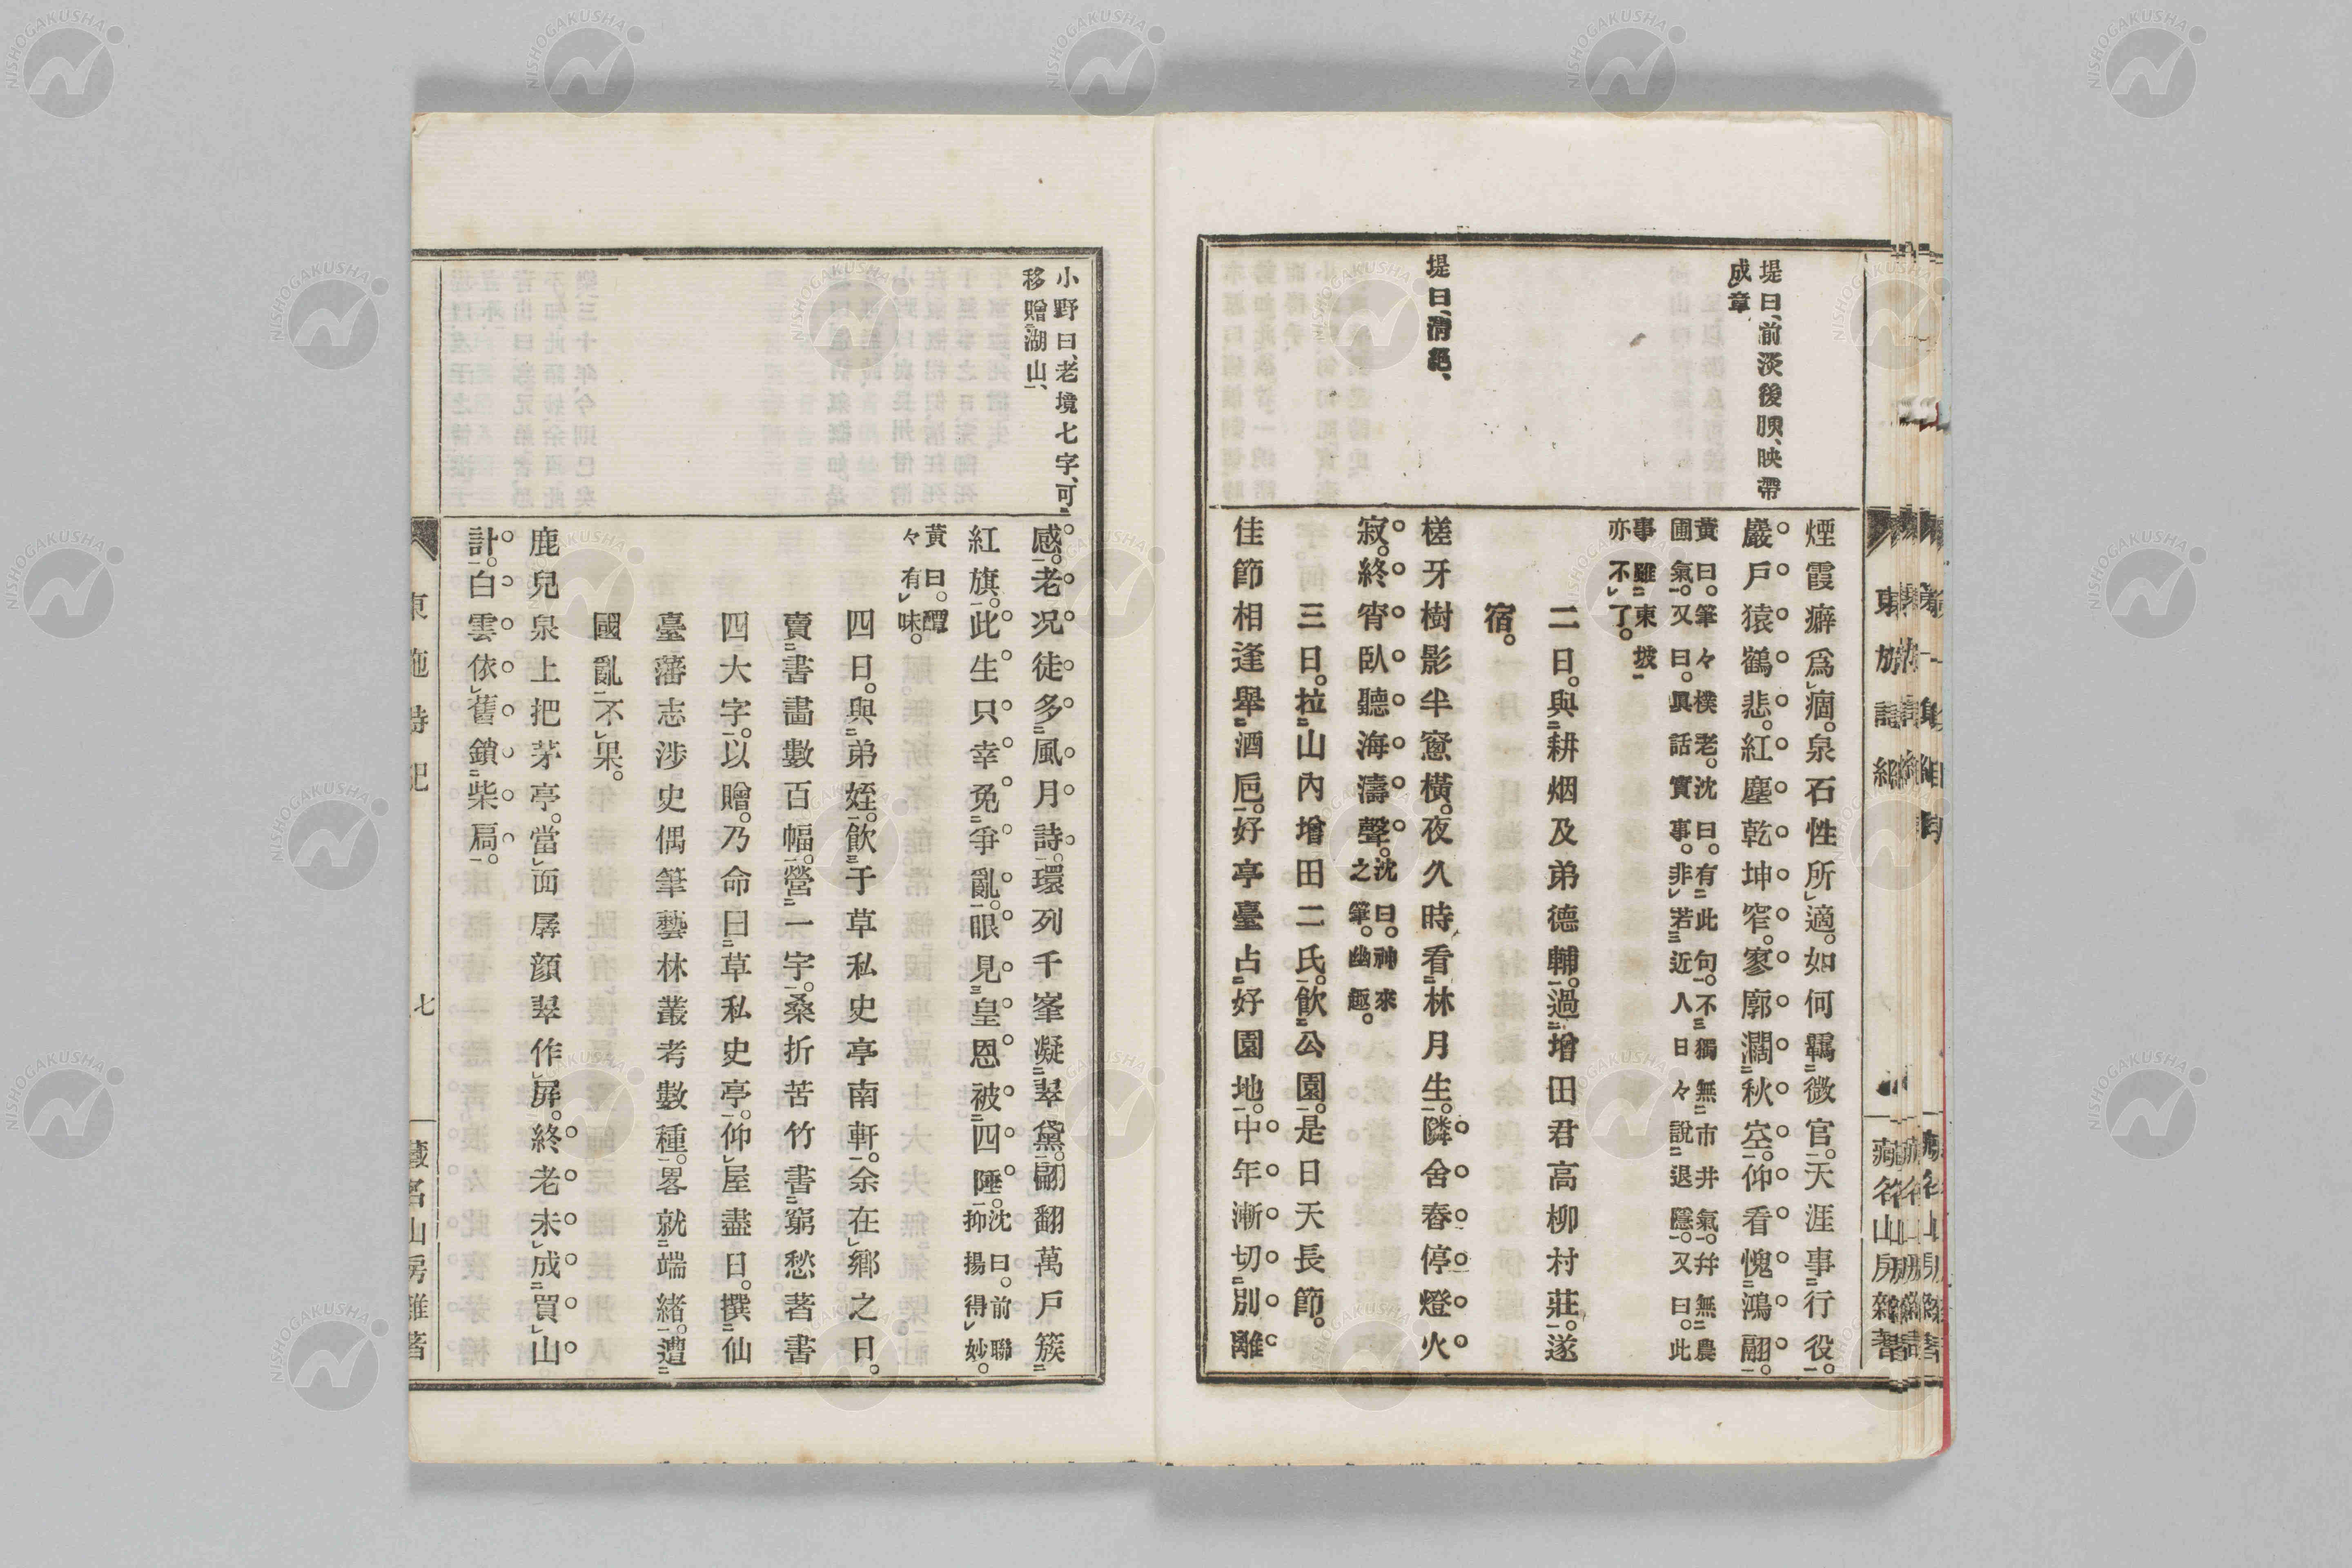 堤曰、前淡後腴、映帶
成章、
堤曰、淸絕、
煙霞癖爲痼。泉石性所適。如何羈微官。天涯事行役。
巖戶猿鶴悲。紅塵乾坤窄。寥廓濶秋空。仰看愧鴻翮。
黃曰。筆々樸老。沈曰。有此句。不獨無市井氣。幷無農
圃氣。又曰。眞話實事。非若近人日々說退隱。又曰。此
事雖東坡
亦不了。
二日。與耕烟及弟德輔。過增田君高柳村莊。遂
宿。
槎牙樹影半窓橫。夜久時看林月生。隣舍舂停燈火
寂。終宵臥聽海濤聲。沈曰。神來
之筆。幽趣。
三日。拉山內增田二氏。飮公園。是日天長節。
佳節相逢舉酒巵。好亭臺占好園地。中年漸切別離
小野曰、老境七字、可
移贈湖山、
感。老況徒多風月詩。環列千峯凝翠黛。翩翻萬戶簇
紅旗。此生只幸免爭亂。眼見皇恩被四陲。沈曰。前聯
抑揚得妙。
黃曰。醰
々有味。
四日。與弟姪。飮于草私史亭南軒。余在鄉之日。
賣書畵數百幅。營一宇。桑折苦竹書窮愁著書
四大字。以贈。乃命曰草私史亭。仰屋盡日。撰仙
臺藩志涉史偶筆藝林叢考數種。畧就端緖。遭
國亂不果。
鹿兒泉上把茅亭。當面孱顏翠作屏。終老未成買山
計。白雲依舊鎖柴扃。
七